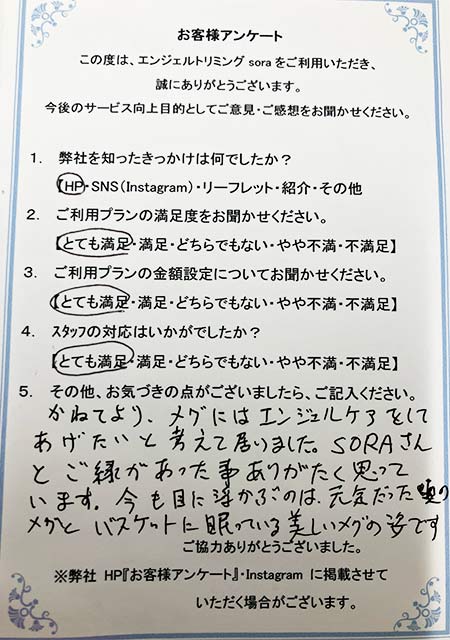 お客様アンケート
この度は、エンジェルトリミング sora をご利用いただき、
誠にありがとうございます。
今後のサービス向上目的としてご意見・ご感想をお聞かせください。
1. 弊社を知ったきっかけは何でしたか?
【HP・SNS(Instagram)・リーフレット・紹介・その他
2. ご利用プランの満足度をお聞かせください。
【とても満足・満足・どちらでもない・やや不満・不満足】
3. ご利用プランの金額設定についてお聞かせください。
【とても満足・満足・どちらでもない・やや不満・不満足】
4. スタッフの対応はいかがでしたか?
【とても満足・満足・どちらでもない・やや不満・不満足】
5. その他、お気づきの点がございましたら、ご記入ください。
かねてより、メグにはエンジェルケアをして
あげたいと考えて居りました。SORAさん
とご縁があった事ありがたく思って
います。今も目に浮かぶのは、元気だった頃の
メグと バスケットに眠っている美しいメグの姿です
ご協力ありがとうございました。
※弊社 HP『お客様アンケート』・Instagram に掲載させて
いただく場合がございます。